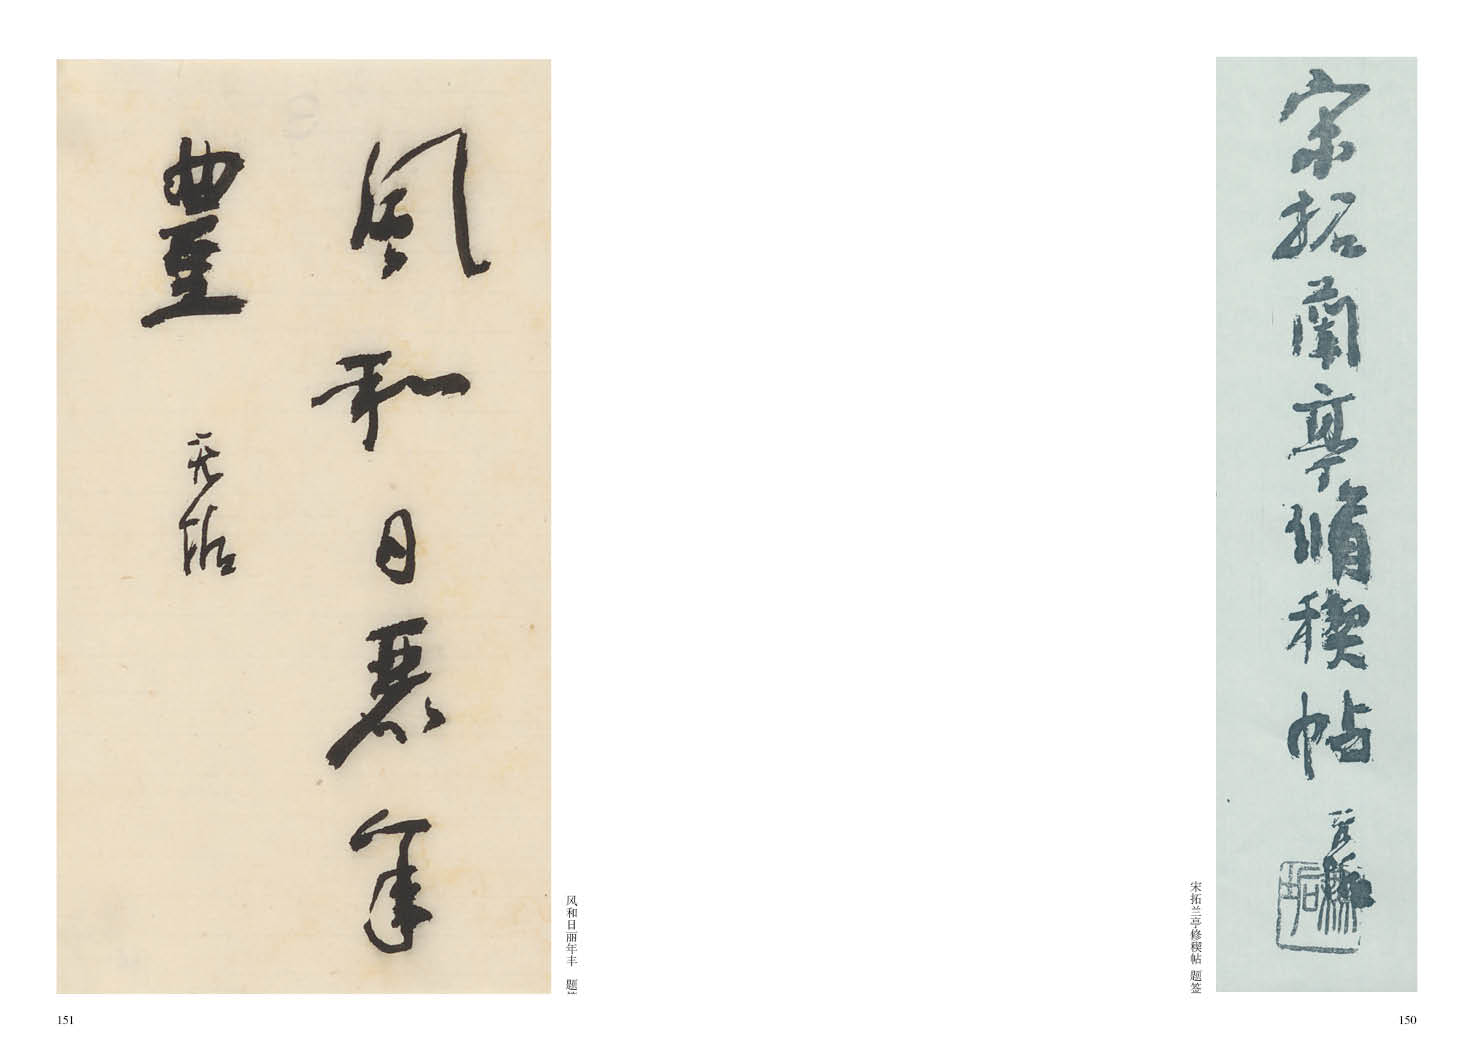 宋拓蘭亭脩稧帖
無垢
宋拓兰亭修稧帖 题签
150
風和日麗年
豐 无垢
风和日丽年丰 题
151